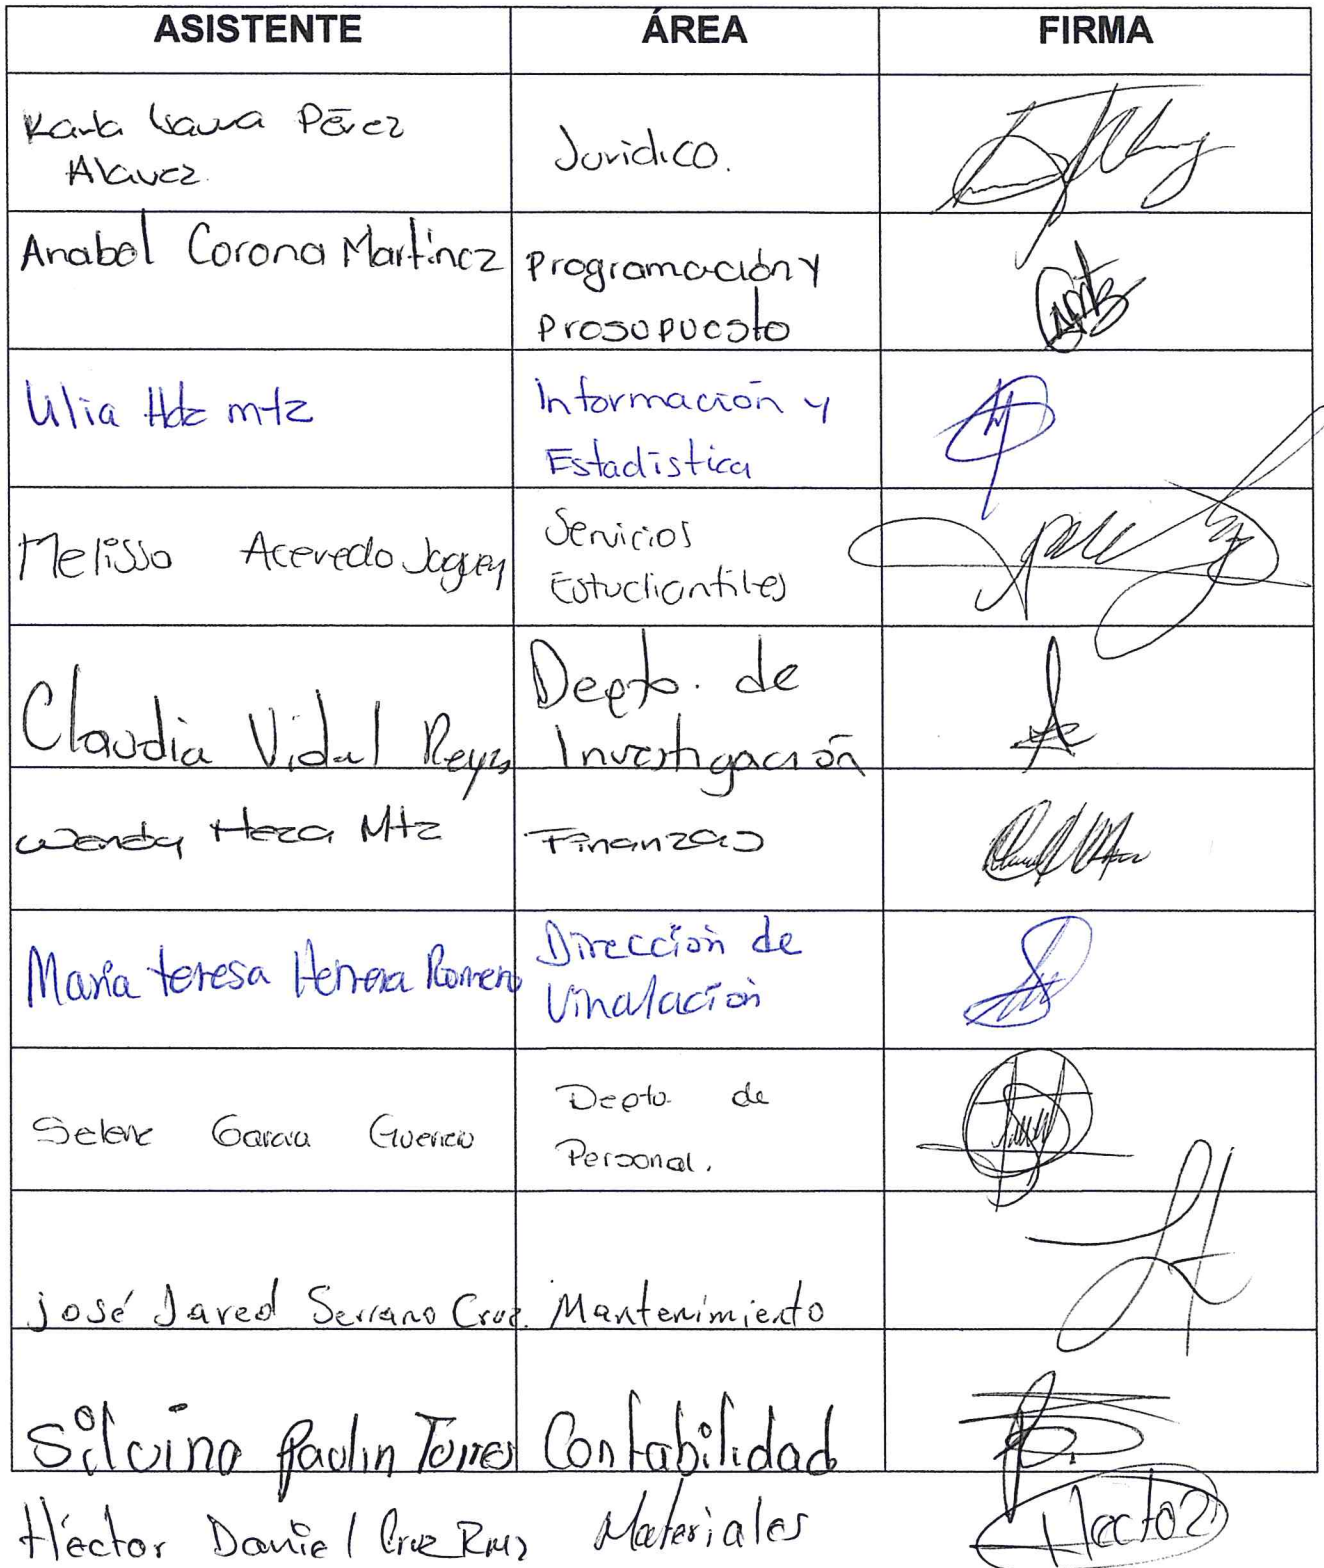 ASISTENTE ÁREA FIRMA
Karla Laura Pérez
Alavez.
Jurídico.
Anabel Corona Martínez
Programación y
Presupuesto
Lilia Hdz mtz
Información y
Estadística
Melissa Acevedo Jaguey
Servicios
Estudiantiles
Claudia Vidal Reyes
Depto. de
Investigación
Wendy Meza Mtz
Finanzas
María teresa Herrera Romero
Dirección de
Vinculación
Selene Garcia Guerrero
Depto. de
Personal.
José Jared Serrano Cruz.
Mantenimiento
Silvino Paulin Torres
Contabilidad
Héctor Daniel Cruz Ruiz
Materiales
Hector